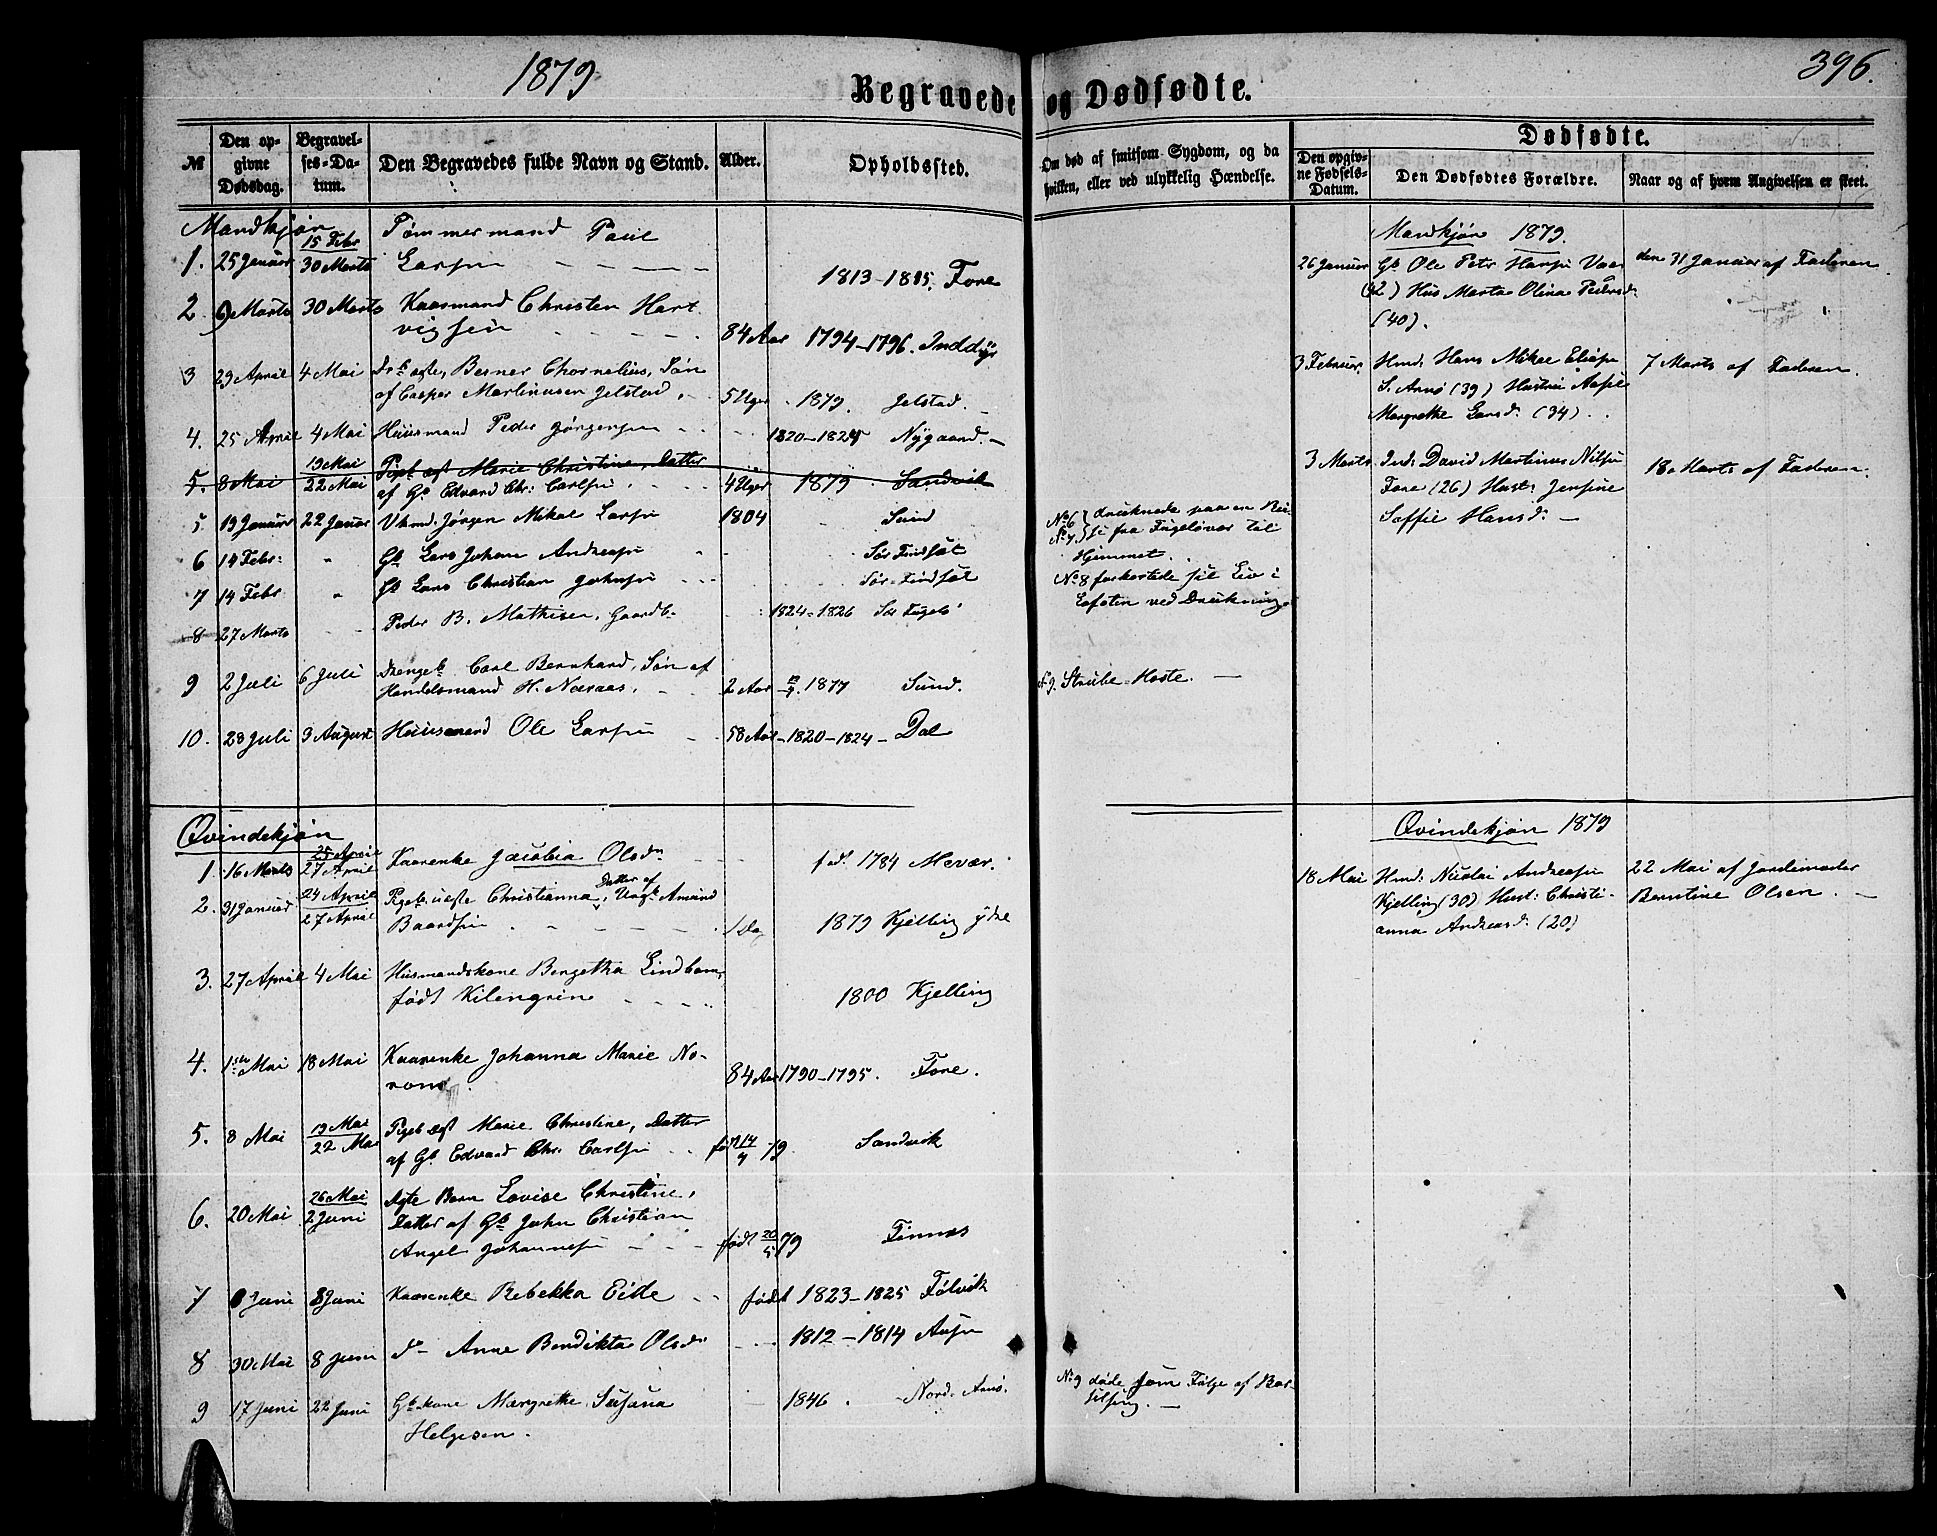 1879
396.
Begravede og Dødfødte.
№
Den opgivne Dødsdag.
Begravelses-Datum.
Den Begravedes fulde Navn og Stand.
Alder.
Opholdssted.
Om død af smitsom Sygdom, og da hvilken, eller ved ulykkelig Hændelse.
Dødfødte.
Den opgivne Fødsels-Datum.
Den Dødfødtes Forældre.
Naar og af hvem Angivelsen er skeet.
Mandkjøn
1. 25 Januar 15 Febr 30 Marts Tømmermand Paul
Larsen 1813-1815. Fore
2. 9 Marts 30 Marts Kaarmand Christen Hart
vigsen 84 Aar 1794-1796. Inddyr
3 29 April 4 Mai Drb ægte, Berner Chornelius, Søn
af Casper Martinusen Jelstad 5 Uger 1879. Jelstad.
4. 25 April 4 Mai Huusmand Peder Jørgensen 1820-1825 Nygaard.
5. 8 Mai 19 Mai 22 Mai Pigeb. ægt Marie Christine, Datter
af Gb Edvard Chr: Carlsen 4 Uger 1879 Sandvik
5 19 Januar 22 Januar Jørgen Mikal Larsen 1804 Sund
6 14 Febr: " Gb Lars Johan Andreasen Sør Findsæt
7 14 Febr " Gb Lars Christian Johnsen Sør-Findsæt
8 27 Marts Peder B. Mathisen, Gaardb. 1824-1826 Sør Fugelø
No 6
No 7. } druknede paa en Rei-
se fra Fugeløvær til
Hjemmet.
No 8 forkortede sit Liv i
Lofoten ved Drukning
9 2 Juli 6 Juli Drengeb. Carl Bernhard, Søn af
Handelsmand H. Næraas, 2 Aar 1877 Sund.
N 9. Strube-Hoste.
10. 28 Juli 3 August Huusmand Ole Larsen 58 Aar 1820-1824 Dal
Mankjøn 1879.
26 Januar Gb Ole Petr Hansen
(42) Hus Marta Olina Pedersd:
(40).
den 31 Januar af Faderen
3 Februar Hmd: Hans Mikal Eliasen
S. Arnø (39) Hustru
Margrethe Larsd: (34).
7 Marts af Faderen.
3 Marts Ind: David Martinus Nilsen
Fore (26) Hust: Jensine
Soffie Hansd:
18 Marts af Faderen.
Qvindekjøn
1. 16 Marts 25 April 27 April Kaarenke Jacobia Olsdr fød. 1784 Mevær.
2. 31 Januar 24 April 27 April Pigeb. uægte Christianna, Datter af Ungk. Amund
Baardsen 1 Dag 1879 Kjelling ydre
3. 27 April 4 Mai Husmandskone Bergetha Lindbom,
født Kilengrine 1800 Kjelling
4. 1ste Mai 18 Mai Kaarenke Johanna Marie No-
rom 84 Aar 1790-1795. Fore.
5. 8 Mai 19 Mai 22 Mai Pigeb ægt Marie Christine, Datter
af Gb Edvard Chr. Carlsen født 14/4 79 Sandvik
6. 20 Mai 26 Mai 2 Juni Ægte Barn Lovise Christine,
Datter af Gb John Christian
Angel Johannesen født 20/5 79 Finnæs
7 8 Juni Kaarenke Rebekka Eide født 1823-1825 Følvik
8 30 Mai 8 Juni do Anne Bendikta Olsdr 1812-1814
9 17 Juni 22 Juni Gbkone Margrethe Susana
Helgesen. 1846. Nord. Arnø.
No 9 døde som Følge af Bar-
selseng.
Qvindekjøn 1879
18 Mai Hmd: Nicolai Andreasen
Kjelling (30) Hust: Christi-
anna Andreasd: (20)
22 Mai af Jordemoder
Berntine Olsen.